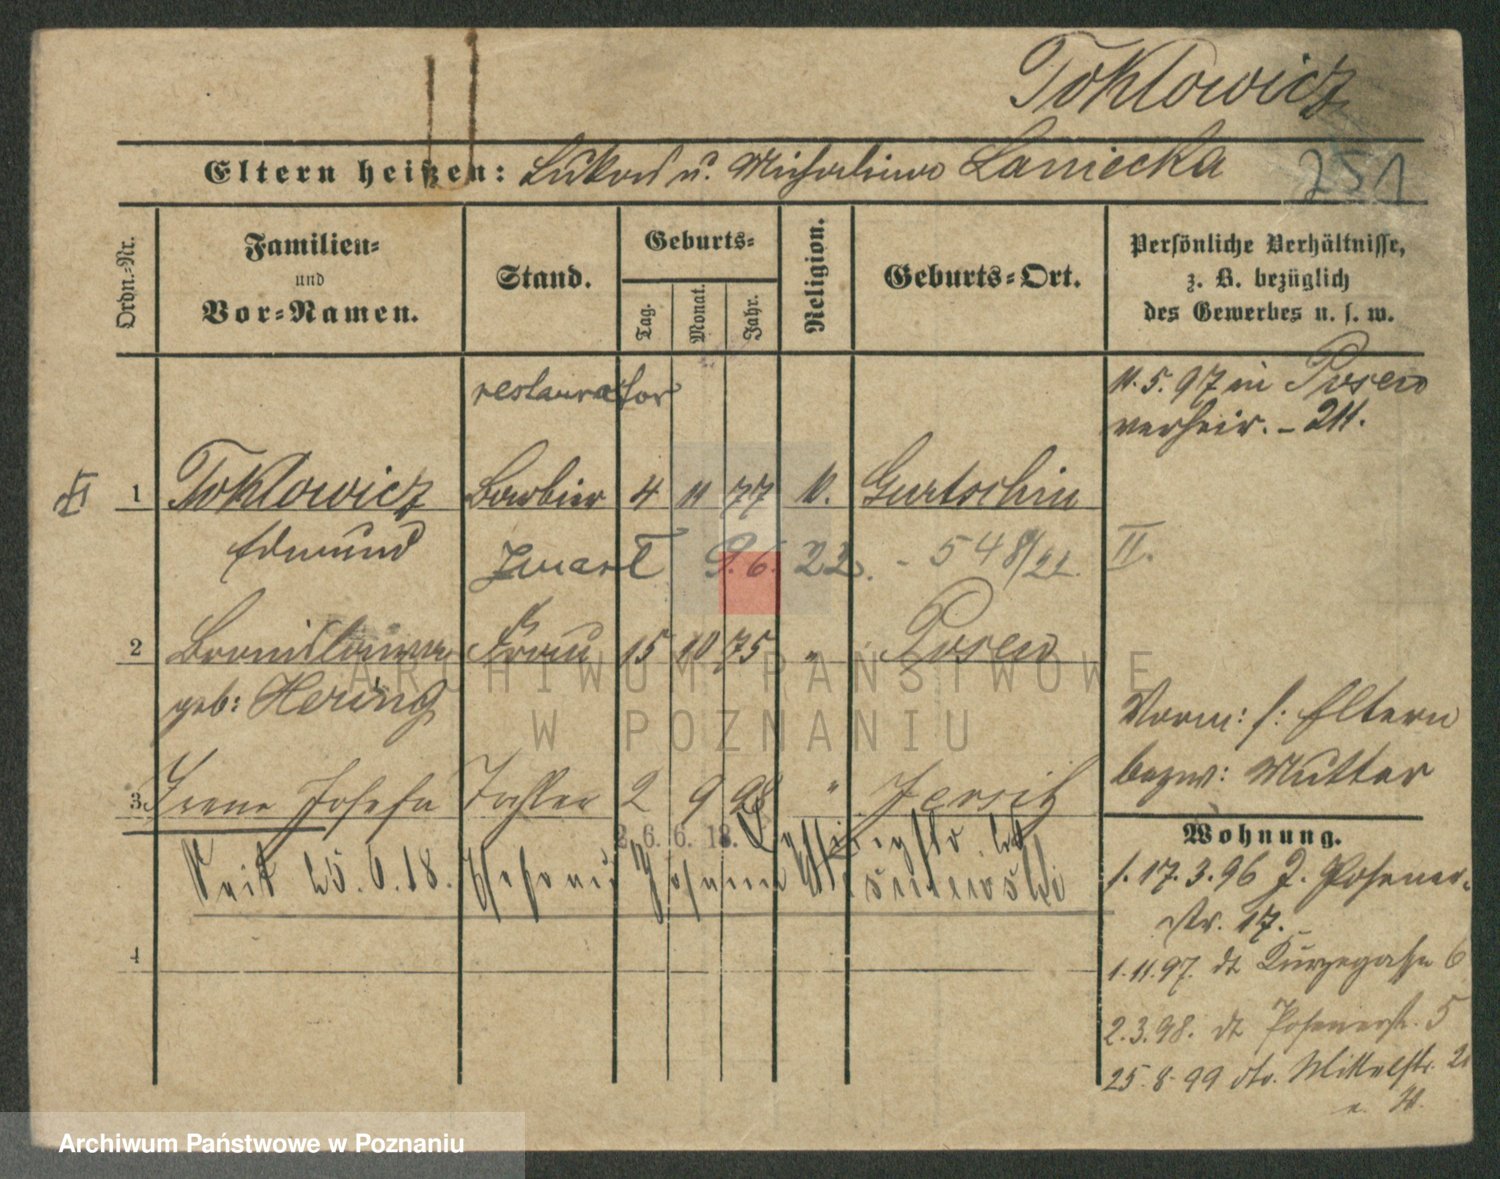 Toklowicz
Eltern heißen: Lukas u. Michalina Laniecka 251
Ordn.-Nr.
Familien-
und
Vor-Namen.
Stand.
Geburts-
Tag.
Monat.
Jahr.
Religion.
Geburts-Ort.
Persönliche Verhältnisse,
z. B. bezüglich
des Gewerbes u. s. w.
restaurator
11. 5. 97 in Posen
verheir. - 211.
1 Toklowicz Barbier 4 11 77 Gurtschin
Edmund
zmarł 9. 6. 22. - 548/22. II.
2 Bronislawa Frau 15 10 75 " Posen
geb: Hering
Vorm: s: Eltern
bezw: Mutter
3 Irene Josefa Tochter 2 9 98 " Jersitz
2 6. 6. 18.
Seit 25. 6. 18.
4
Wohnung.
1. 17. 3. 96 J. Posener-
Str. 17.
1. 11. 97. dt Kurzegasse 6
2. 3. 98. dt Posenerstr. 5
25. 8. 99 dto. Mittelstr.
ARCHIWUM PAŃSTWOWE
W POZNANIU
Archiwum Państwowe w Poznaniu